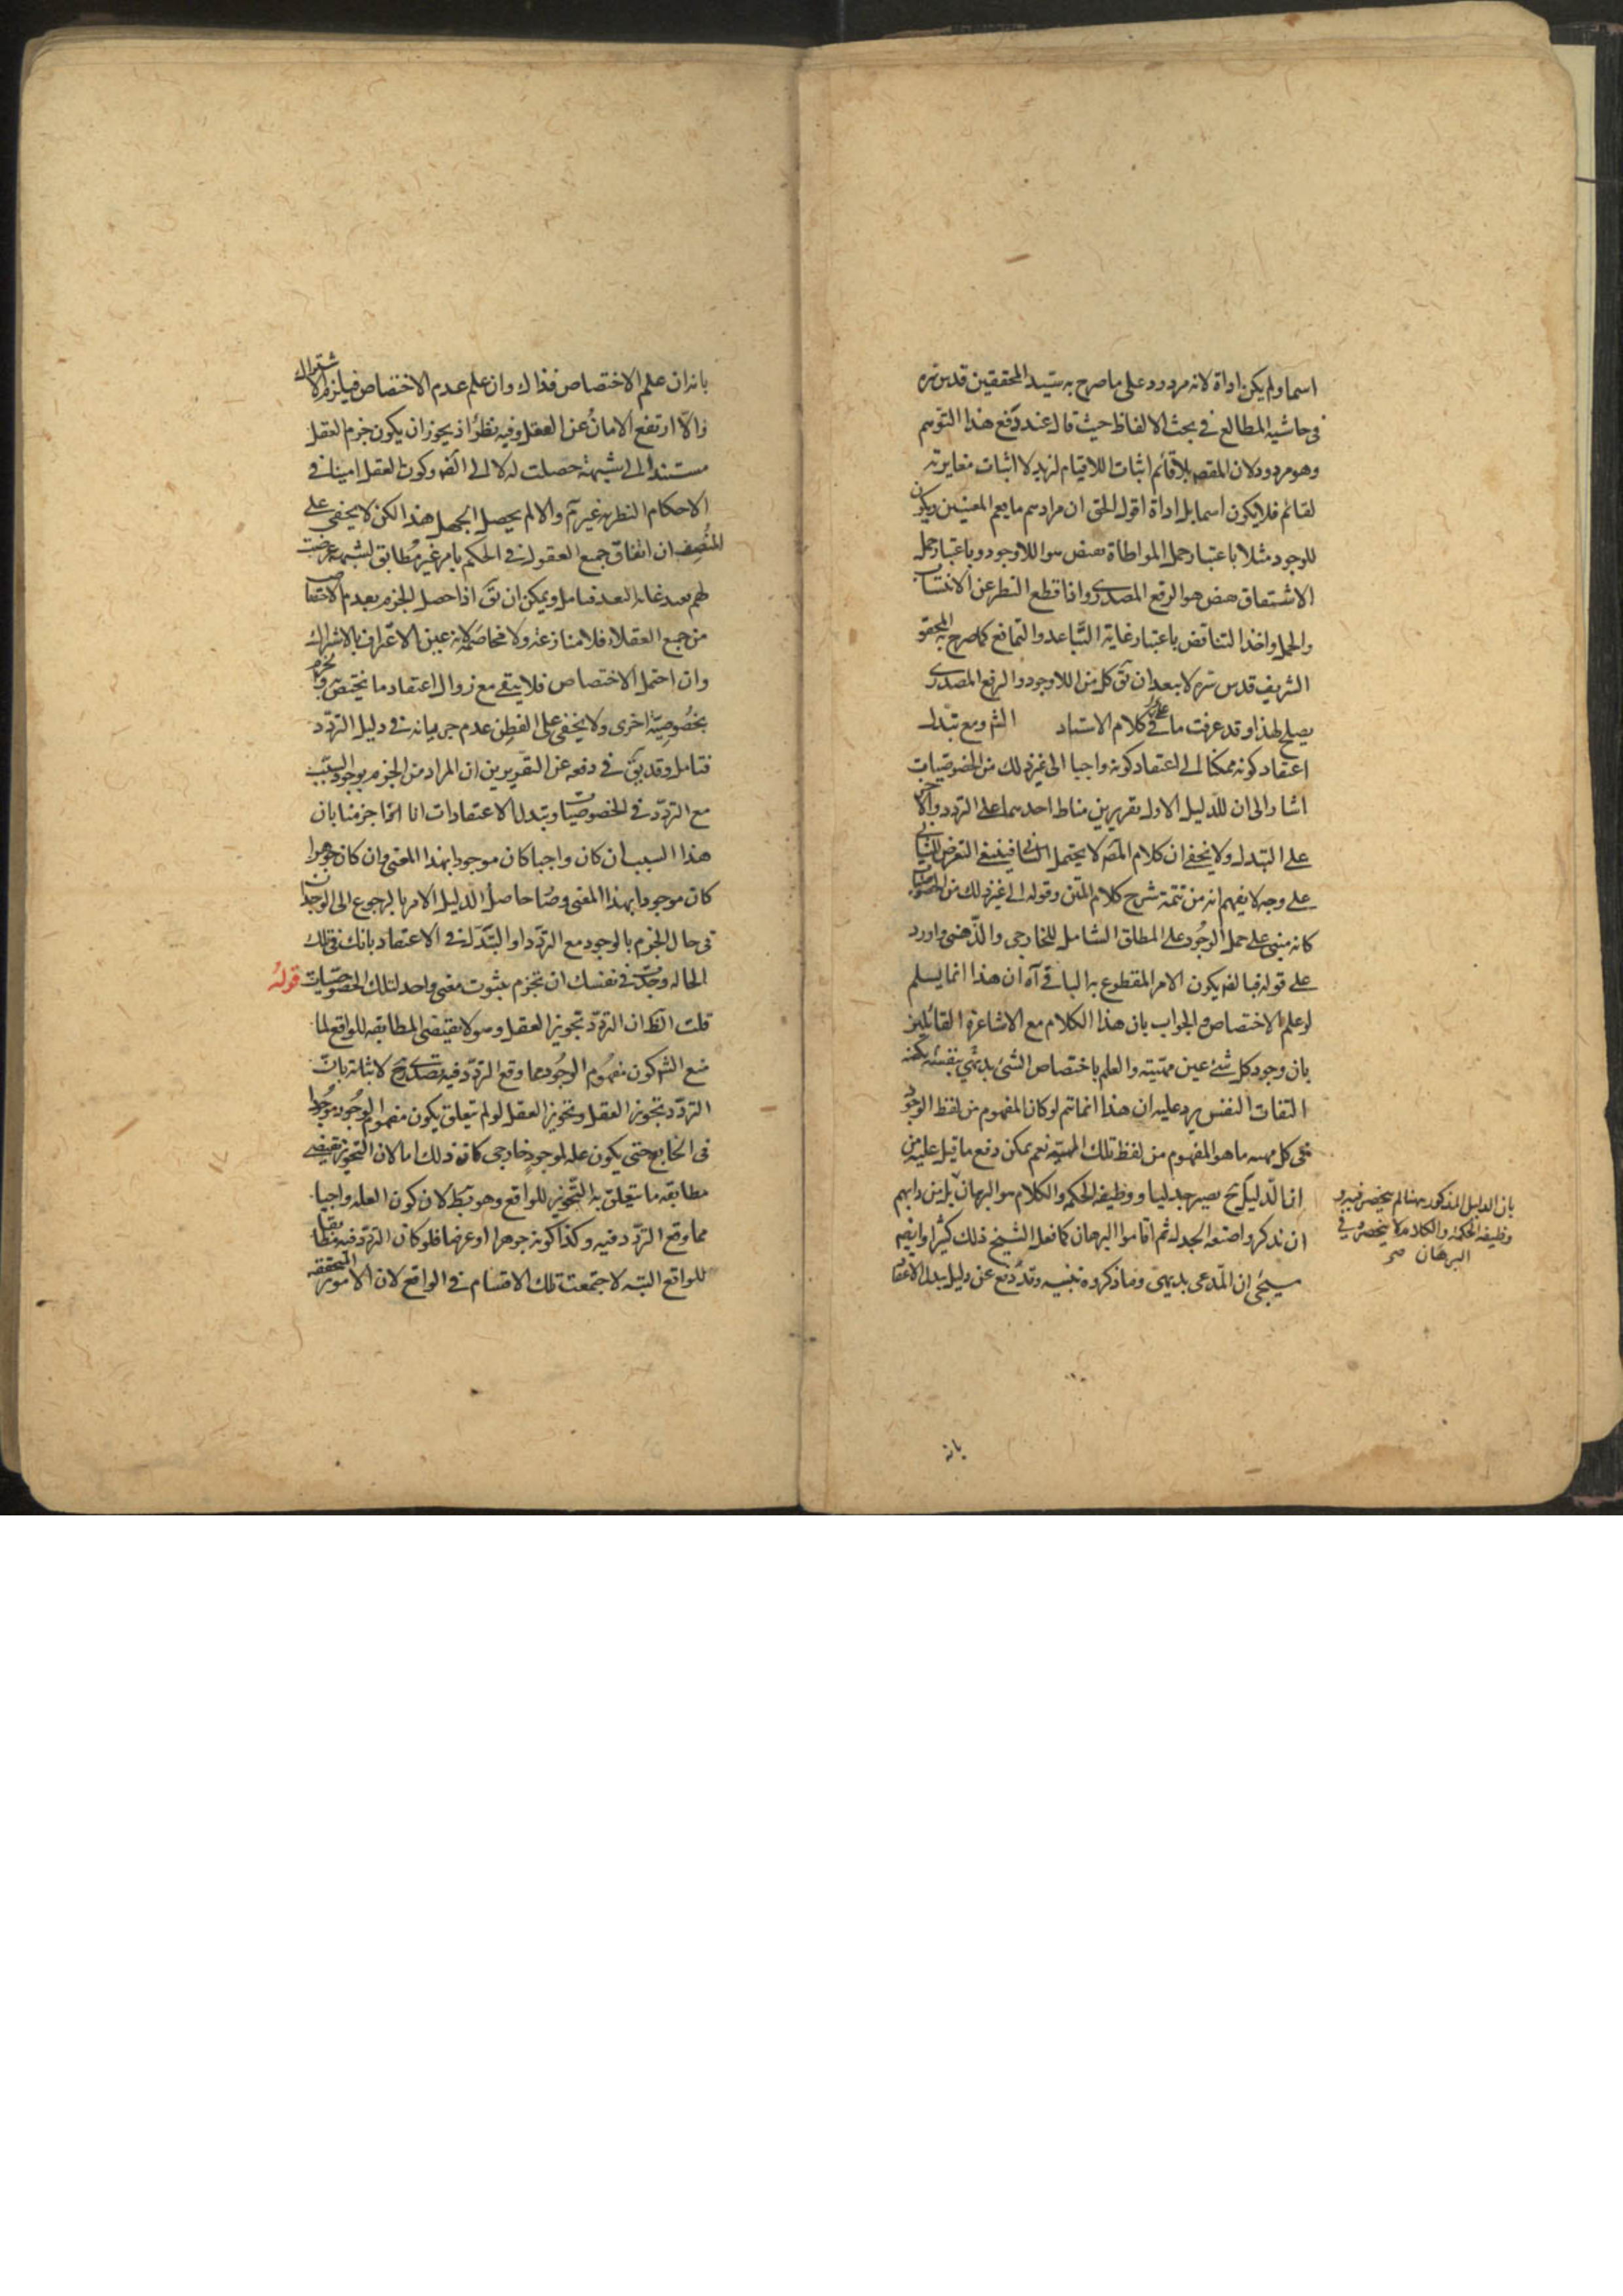 اسما ولم يكن اداة لانه مردود على ما صرح به سيد المحققين قدس سره
فى حاشيه المطالع فى بحث الالفاظ حيث قال عند دفع هذا التوهم
وهو مردود لان المقصد بلا قائم اثبات اللاقيام لزيد لا اثبات مغايرته
لقائم فلا يكون اسما بل اداة اقول الحق ان مرادهم ما يعم المعنيين ويكون
للوجود مثلا باعتبار حمل المواطاة نقيض هو اللاوجود وباعتبار حمل
الاشتقاق نقيض هو الرفع المصدرى واذا قطع النظر عن الانتساب
والحمل واخذ التناقض باعتبار غاية التباعد والتمانع كما صرح به المحقق
الشريف قدس سره لا يبعد ان يق كل من اللاوجود والرفع المصدرى
يصلح لهذا وقد عرفت ما فى كلام الاستاد الش ومع تبدل
اعتقاد كونه ممكنا الى اعتقاد كونه واجبا الى غير ذلك من الخصوصيات
اشار الى ان للدليل الاول تقريرين مناط احدهما على التردد والاخر
على التبدل ولا يخفى ان كلام المص لا يحتمل الثانى فينبغى التعرض للثانى
على وجه لا يفهم انه من تتمة شرح كلام المتن وقوله الى غير ذلك من الخصوصيات
كانه مبنى على حمل الوجود على المطلق الشامل للخارجى والذهنى واورد
على قوله فبالضر يكون الامر المقطوع به الباقى آه ان هذا انما يسلم
لو علم الاختصاص والجواب بان هذا الكلام مع الاشاعرة القائلين
بان وجود كل شئ عين مهيته والعلم باختصاص الشئ بديهى بنفسه يكفيه
التفات النفس يرد عليه ان هذا انما يتم لو كان المفهوم من لفظ الوجود
فى كل مهيه ما هو المفهوم من لفظ تلك المهية نعم يمكن دفع ما قيل عليه من
ان الدليل ح يصير جدليا ووظيفه الحكمه والكلام هو البرهان بل من دابهم
ان يذكروا صنعه الجدل ثم اقاموا البرهان كما فعل الشيخ ذلك كثيرا وايضا
سيجئ ان المدعى بديهى وما ذكروه تنبيه وقد دفع عن دليل تبدل الاعتقاد
بان الدليل المذكور ههنا لم ينحصر فيه و
وظيفه الحكمة والكلام لا ينحصر فى
البرهان صح
بانه
بانه ان علم الاختصاص فذاك وان علم عدم الاختصاص فيلزم الاشتراك
والا ارتفع الامان عن العقل وفيه نظر اذ يجوز ان يكون جزم العقل
مستندا الى شبهة حصلت له لا الى الضر وكون العقل امينا فى
الاحكام النظريه غير تم والا لم يحصل الجهل هذا لكن لا يخفى على
المنصف ان اتفاق جميع العقول فى الحكم بامر غير مطابق لشبهة عرضت
لهم بعيد غاية البعد فتامل ويمكن ان يق اذا حصل الجزم بعدم الاختصاص
من جميع العقلاء فلا منازعة ولا مخاصمة لانه عين الاعتراف بالاشتراك
وان احتمل الاختصاص فلا يبقى مع زوال اعتقاد ما يختص به والجزم
بخصوصية اخرى ولا يخفى على الفطن عدم جريانه فى دليل التردد
فتامل وقد يق فى دفعه عن التقريرين ان المراد من الجزم بوجود السبب
مع التردد فى الخصوصيات وتبدل الاعتقادات انا انما جزمنا بان
هذا السبب ان كان واجبا كان موجودا بهذا المعنى وان كان جوهرا
كان موجودا بهذا المعنى وصار حاصل الدليل الامر بالرجوع الى الوجدان
فى حال الجزم بالوجود مع التردد او التبدل فى الاعتقاد بانك فى تلك
الحاله وجدت فى نفسك ان تجزم بثبوت معنى واحد لتلك الخصوصيات قوله
قلت الظ ان التردد تجويز العقل وهو لا يقتضى المطابقه للواقع لما
منع الش كون مفهوم الوجود مما وقع التردد فيه تصدى ح لاثباته بان
التردد تجويز العقل وتجويز العقل لو لم يتعلق بكون مفهوم الوجود موجودا
فى الخارج حتى يكون عله لموجود خارجى كان ذلك اما لان التجويز يقتضى
مطابقه ما يتعلق به التجويز للواقع وهو بط لان كون العله واجبا
مما وقع التردد فيه وكذا كونه جوهرا او عرضا فلو كان التردد فيه مطابقا
للواقع البته لاجتمعت تلك الاقسام فى الواقع لان الامور المتحققه